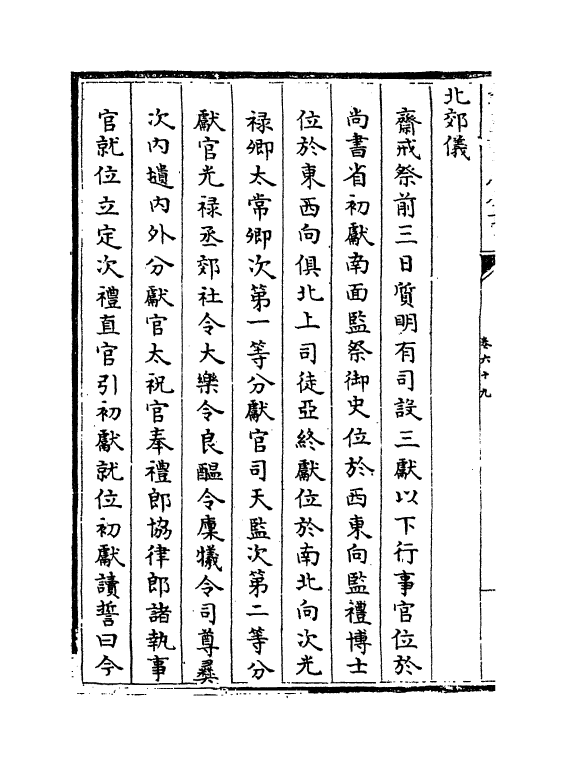 卷六十九
北郊儀
齋戒祭前三日質明有司設三獻以下行事官位於
尚書省初獻南面監祭御史位於西東向監禮博士
位於東西向俱北上司徒亞終獻位於南北向次光
禄卿太常卿次第一等分獻官司天監次第二等分
獻官光禄丞郊社令大樂令良醖令廩犧令司尊彝
次内壝内外分獻官太祝官奉禮郎協律郎諸執事
官就位立定次禮直官引初獻就位初獻讀誓曰今